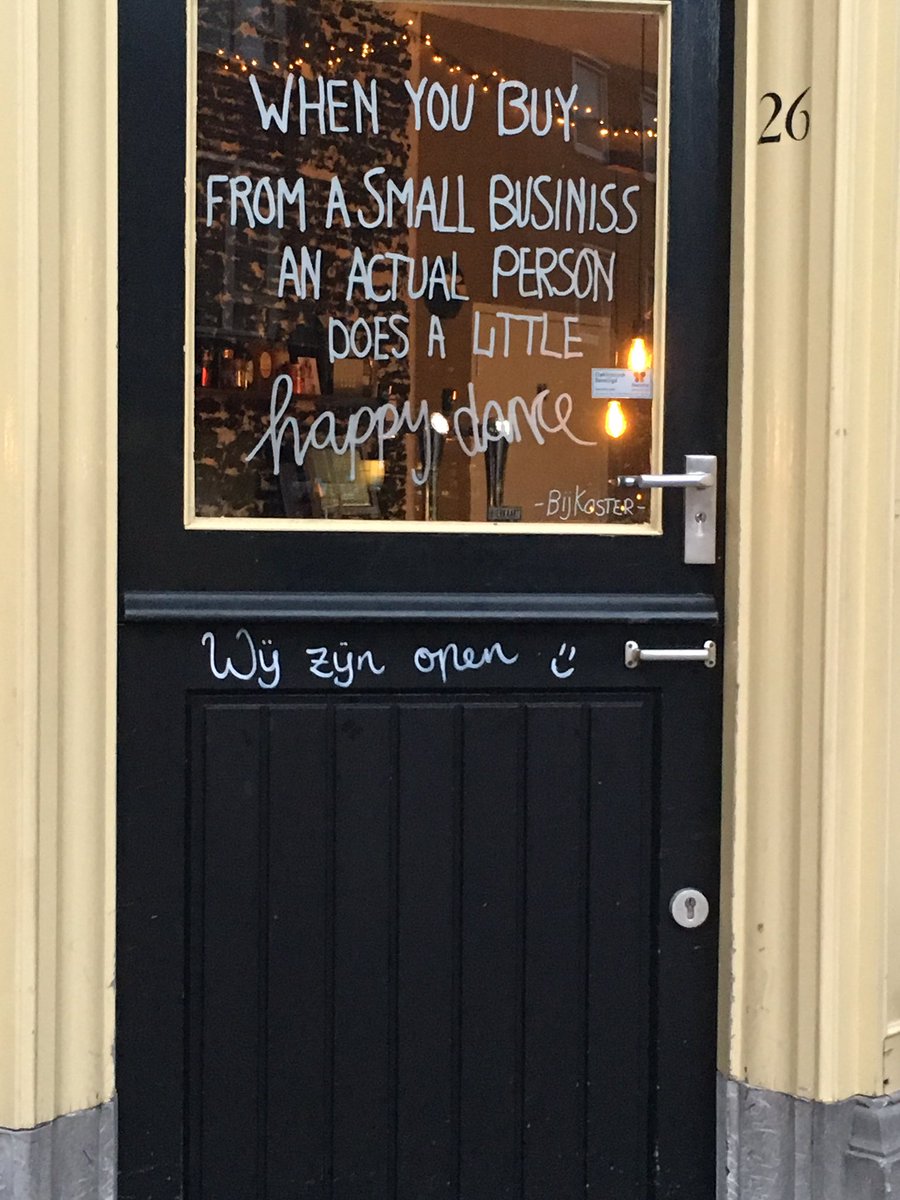 WHEN YOU BUY
26
FROM A SMALL BUSINISS
AN ACTUAL PERSON
DOES A LITTLE
happy dance
-BIJKOSTER-
Wij zijn open :)